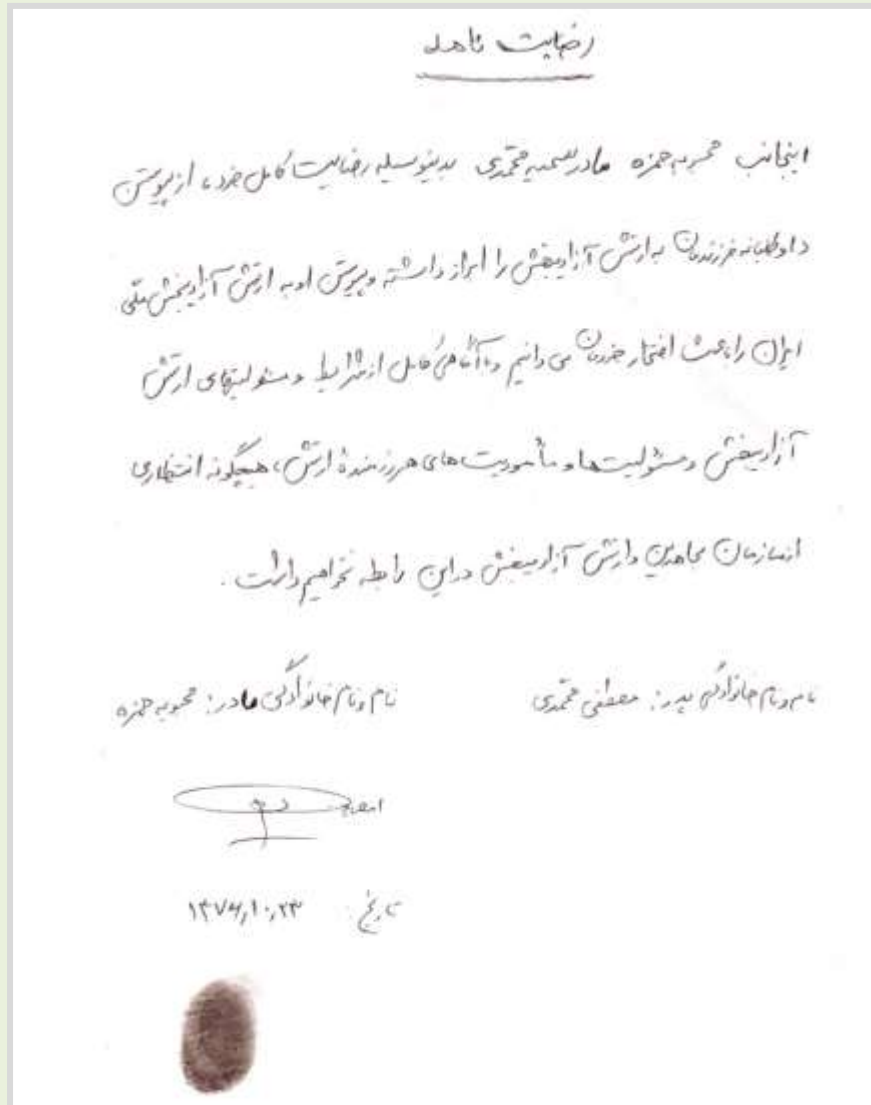 رضایت نامه
اینجانب محبوبه حمزه مادر سمیه محمدی بدینوسیله رضایت کامل خود، از پیوستن
داوطلبانه فرزندمان به ارتش آزادیبخش را ابراز داشته و پیوستن او به ارتش آزادیبخش ملی
ایران را باعث افتخار خودمان می دانیم و با آگاهی کامل از شرایط و مسئولیتهای ارتش
آزادیبخش و مسئولیت ها و مأموریت های هر رزمندهٔ ارتش، هیچگونه انتظاری
از سازمان مجاهدین و ارتش آزادیبخش در این رابطه نخواهیم داشت.
نام و نام خانوادگی پدر: مصطفی محمدی نام و نام خانوادگی مادر: محبوبه حمزه
امضاء
تاریخ: ۱۳۷۶,۱۰,۲۳